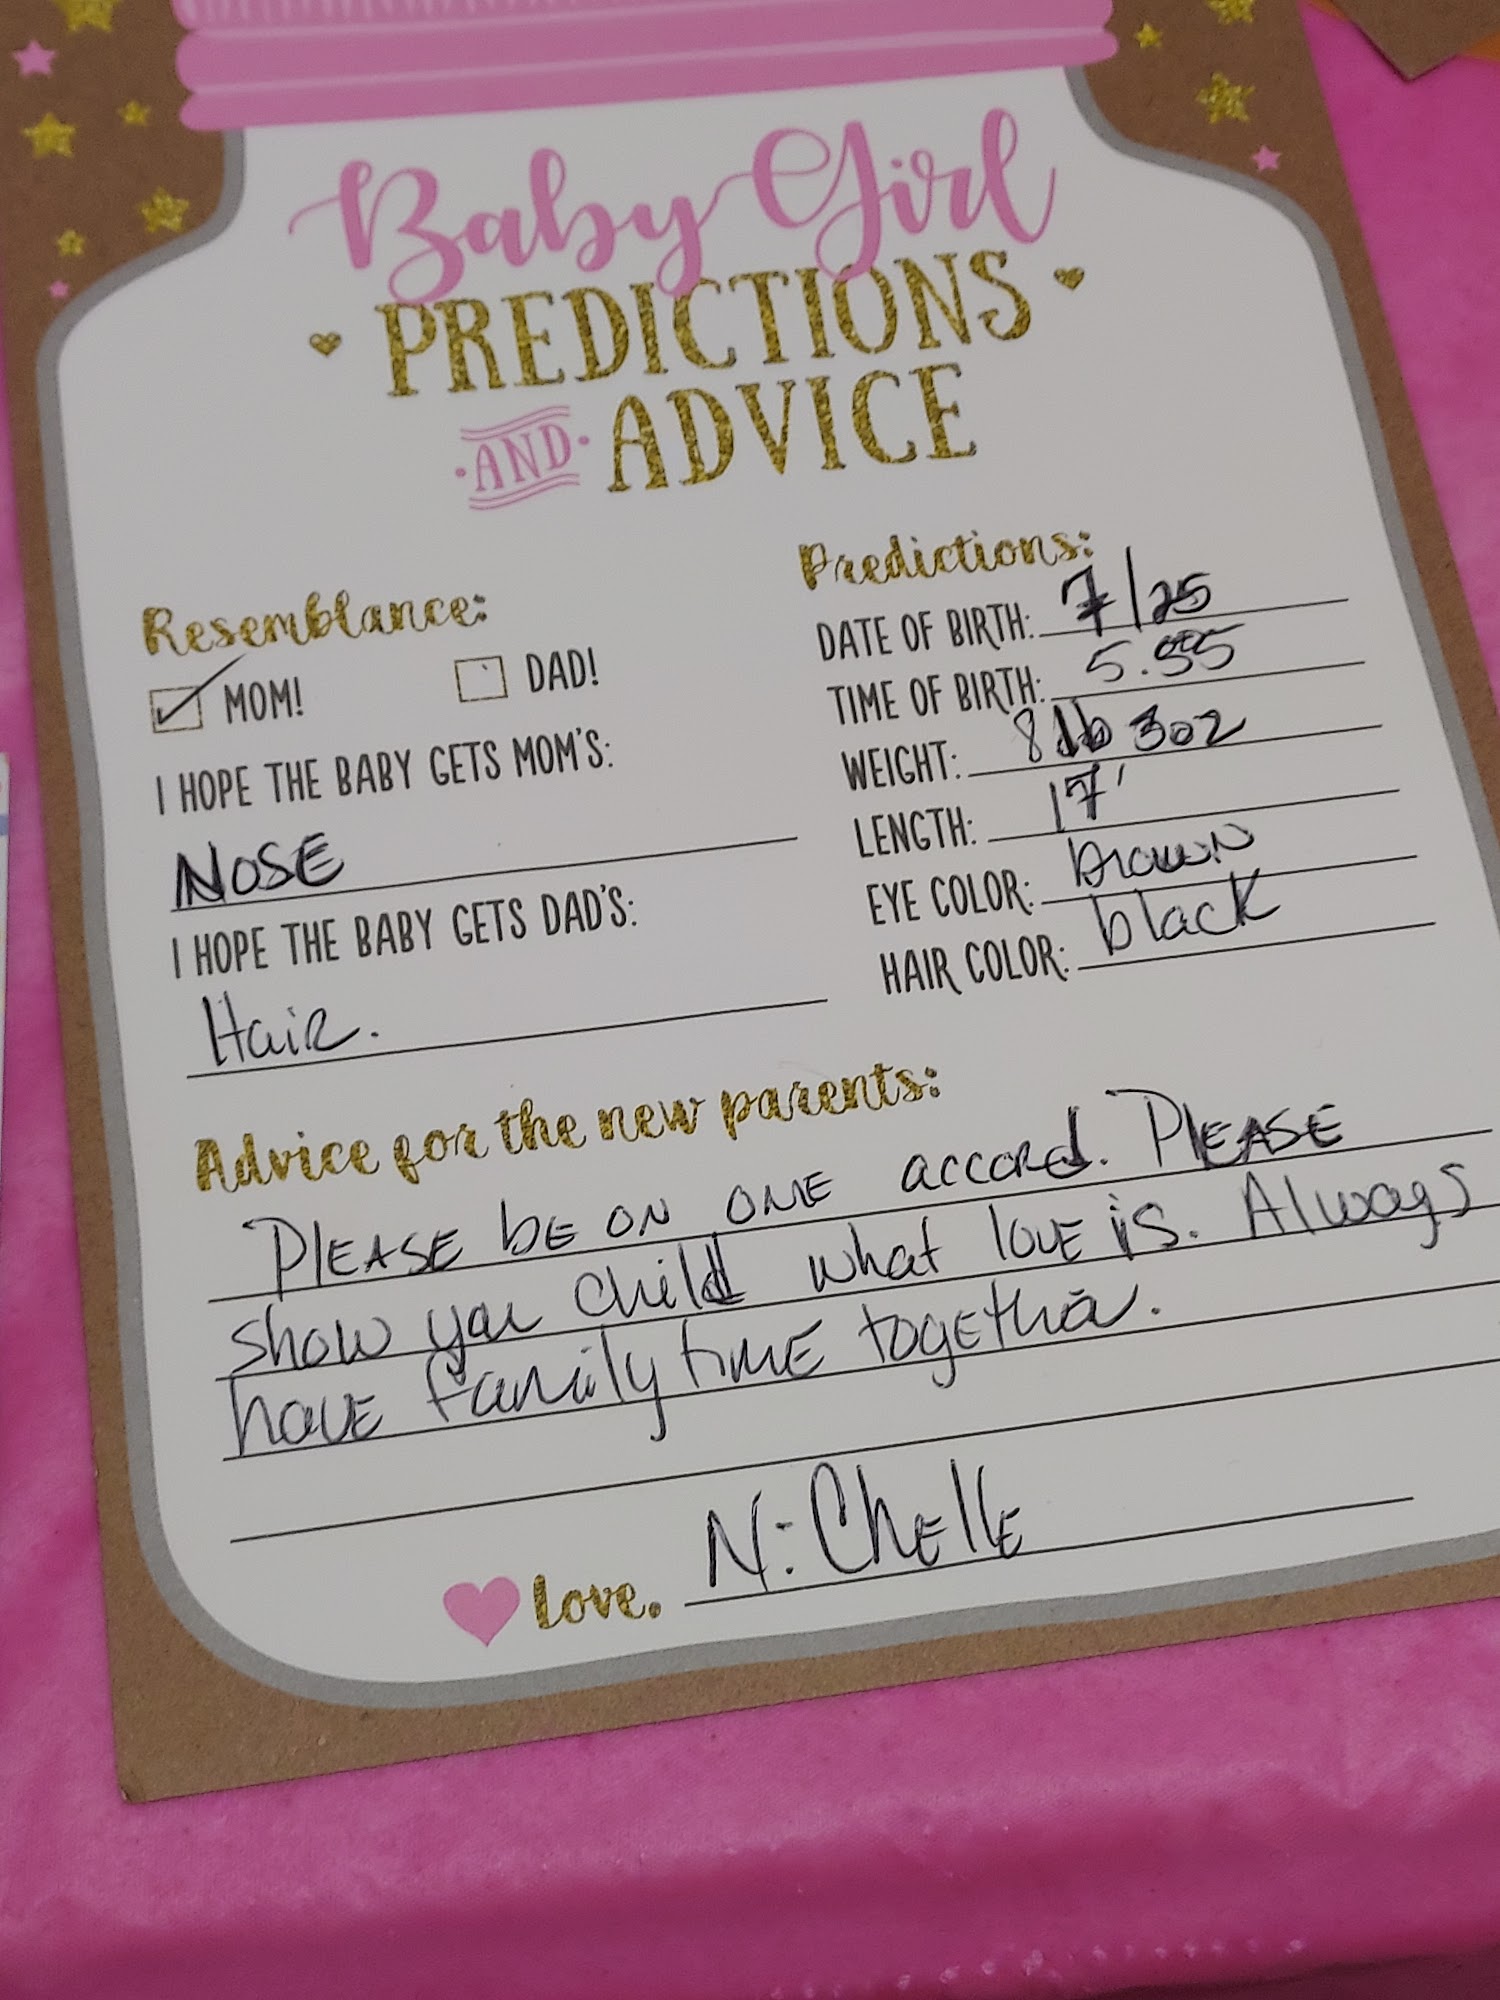 Baby Girl
PREDICTIONS
AND ADVICE
Resemblance:
MOM! DAD!
I HOPE THE BABY GETS MOM'S:
NOSE
I HOPE THE BABY GETS DAD'S:
Hair.
Predictions:
DATE OF BIRTH: 7/25
TIME OF BIRTH: 5.55
WEIGHT: 8lb 3oz
LENGTH: 17'
EYE COLOR: brown
HAIR COLOR: black
Advice for the new parents:
PlEASE bE ON ONE accord. PlEASE
show your child what lovE is. Always
havE family timE togEther.
love, N:ChEllE